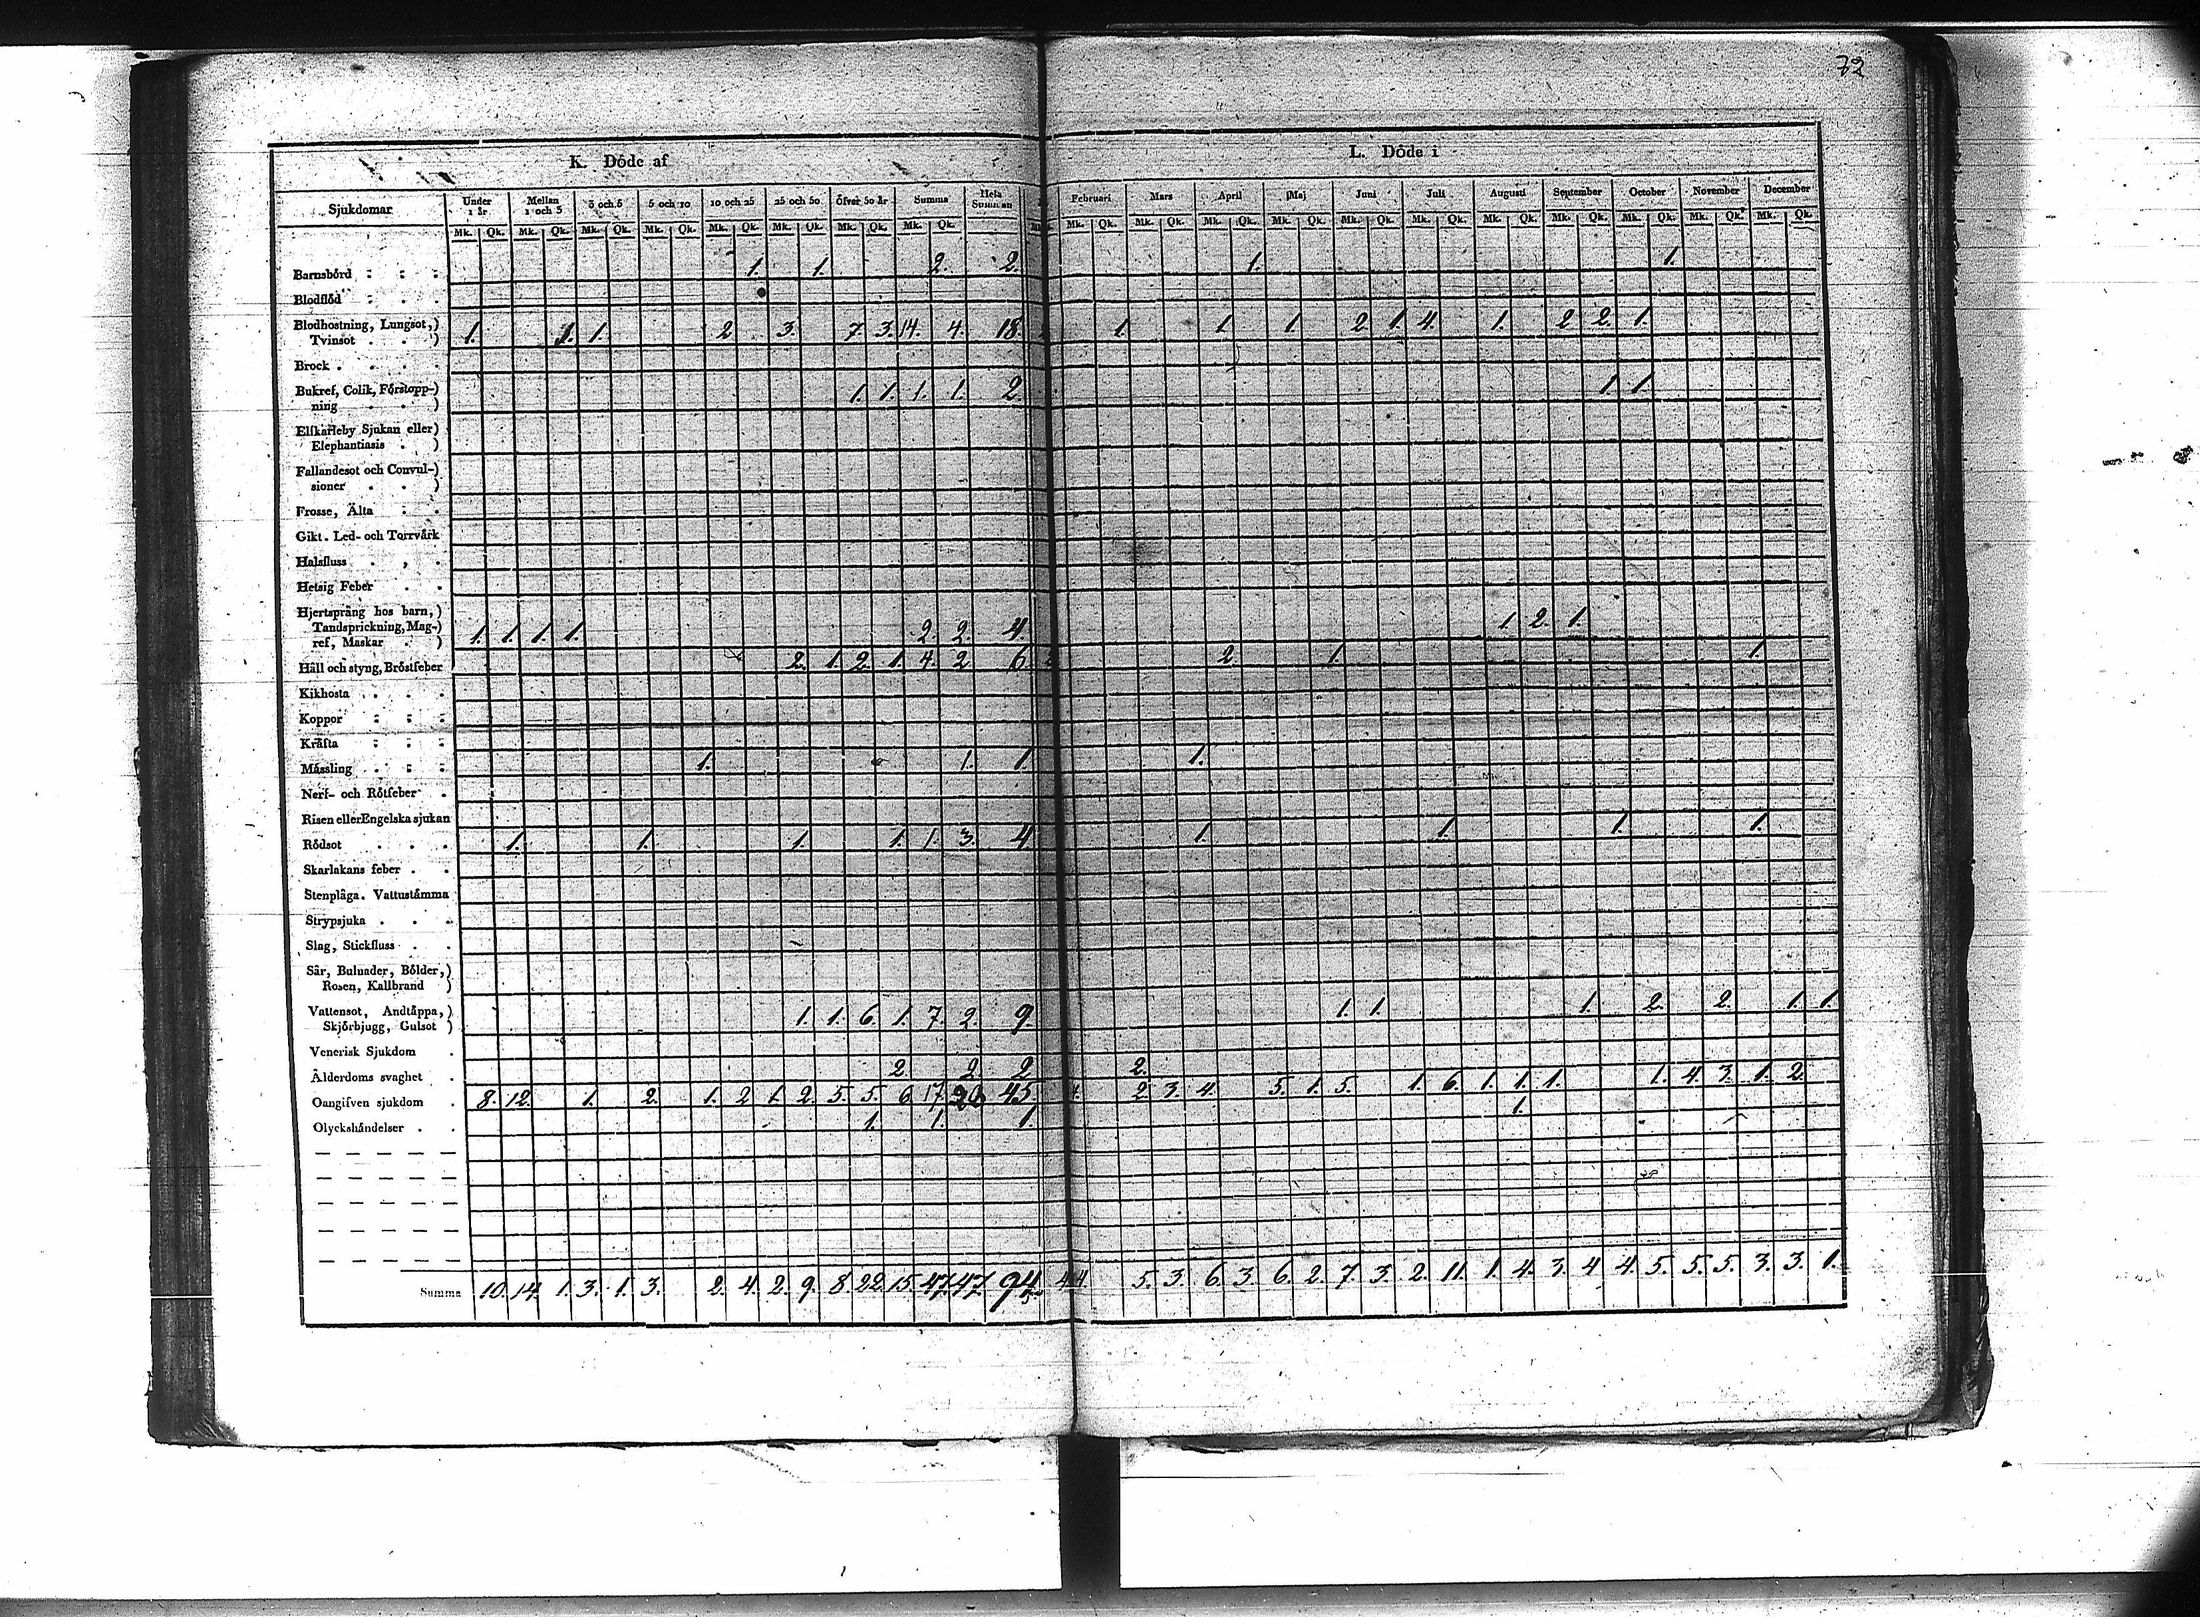 72
K. Döde af L. Döde i
Sjukdomar Under 1 år Mellan 1 och 5 3 och 5 5 och 10 10 och 25 25 och 50 Öfver 50 år Summa Hela Summan Februari Mars April Maj Juni Juli Augusti September October November December
Mk. Qk. Mk. Qk. Mk. Qk. Mk. Qk. Mk. Qk. Mk. Qk. Mk. Qk. Mk. Qk. Mk. Qk. Mk. Qk. Mk. Qk. Mk. Qk. Mk. Qk. Mk. Qk. Mk. Qk. Mk. Qk. Mk. Qk. Mk. Qk. Mk. Qk.
Barnsbörd 1. 1. 2. 2. 1. 1.
Blodflöd
Blodhostning, Lungsot,)
Tvinsot ) 1. 1. 1. 2. 3. 7. 3. 14. 4. 18. 1. 1. 1. 2. 1. 4. 1. 2 2. 1.
Brock
Bukref, Colik, Förstopp-)
ning ) 1. 1. 1. 1. 2. 1. 1.
Elfkarleby Sjukan eller)
Elephantiasis )
Fallandesot och Convul-)
sioner )
Frosse, Älta
Gikt. Led- och Torrvärk
Halsfluss
Hetsig Feber
Hjertsprång hos barn,)
Tandsprickning, Mag-)
ref, Maskar ) 1. 1. 1. 1. 2. 2. 4. 1. 2. 1.
Håll och styng, Bröstfeber 2. 1. 2. 1. 4. 2. 6 2. 1. 1.
Kikhosta
Koppor
Kräfta
Mässling 1. 1. 1. 1.
Nerf- och Rötfeber
Risen eller Engelska sjukan
Rödsot 1. 1. 1. 1. 1. 3. 4. 1. 1. 1. 1.
Skarlakans feber
Stenplåga. Vattustämma
Strypsjuka
Slag, Stickfluss
Sår, Bulnader, Bölder,)
Rosen, Kallbrand )
Vattensot, Andtäppa,)
Skjörbjugg, Gulsot ) 1. 1. 6. 1. 7. 2. 9. 1. 1. 1. 2. 2. 1. 1.
Venerisk Sjukdom
Ålderdoms svaghet 2. 2. 2. 2.
Oangifven sjukdom 8. 12. 1. 2. 1. 2 1. 2. 5. 5. 6 17. 45. 4. 2. 3. 4. 5. 1. 5. 1. 6. 1. 1. 1. 1. 4. 3. 1. 2.
Olyckshändelser 1. 1. 1. 1.
Summa 10. 14. 1. 3. 1. 3. 2. 4. 2. 9. 8. 22. 15. 47. 47. 94. 4. 4. 5. 3. 6. 3. 6. 2. 7. 3. 2. 11. 1. 4. 3. 4. 4. 5. 5. 5. 3. 3. 1.